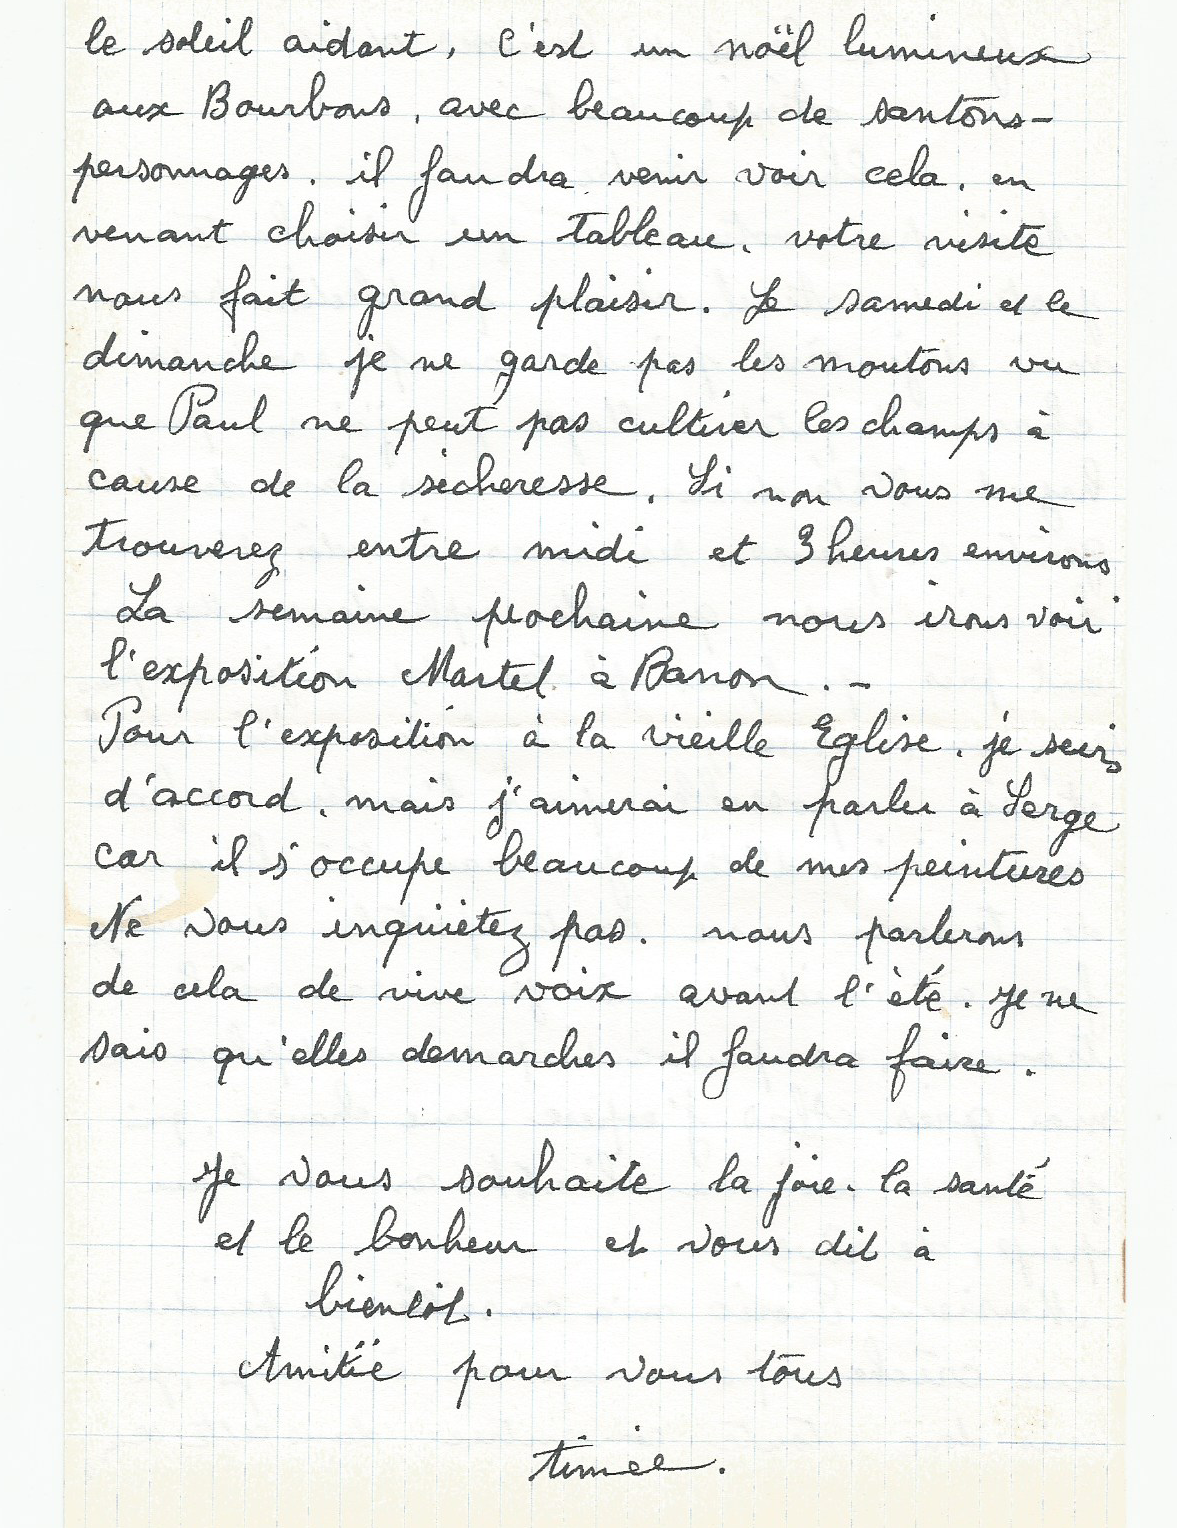 le soleil aidant, C'est un noël lumineux
aux Bourbons, avec beaucoup de santons-
personnages. il faudra venir voir cela. en
venant choisir un tableau. votre visite
nous fait grand plaisir. Le samedi et le
dimanche je ne garde pas les moutons vu
que Paul ne peut pas cultiver les champs à
cause de la sécheresse. Si non vous me
trouverez entre midi et 3 heures environs
La semaine prochaine nous irons voir
l'exposition Martel à Banon. -
Pour l'exposition à la vieille Eglise. je suis
d'accord. mais j'aimerai en parler à Serge
car il s'occupe beaucoup de mes peintures
Ne vous inquiètez pas. nous parlerons
de cela de vive voix avant l'été. Je ne
sais qu'elles demarches il faudra faire.
Je vous souhaite la joie. la santé
et le bonheur et vous dit à
bientôt.
Amitié pour vous tous